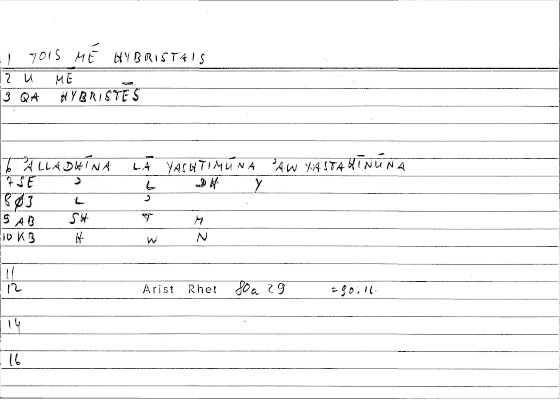 1 TOIS MĒ HYBRISTAIS
2 U MĒ
3 QA HYBRISTĒS
6 'ALLADHĪNA LĀ YASHTIMŪNA 'AW YASTAHĪNŪNA
7 SE ' L DH Y
8 Ø3 L '
9 AB SH T M
10 KB H W N
11
12 Arist Rhet 80a 29 =90.11
14
16